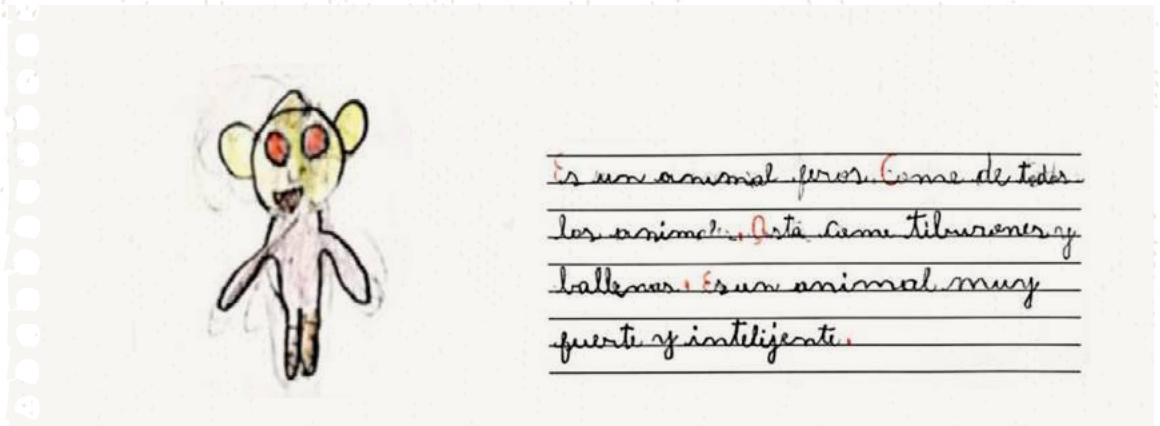 Es un animal feros. Come de todos
los animales. Asta come tiburones y
ballenas. Es un animal muy
fuerte y intelijente.